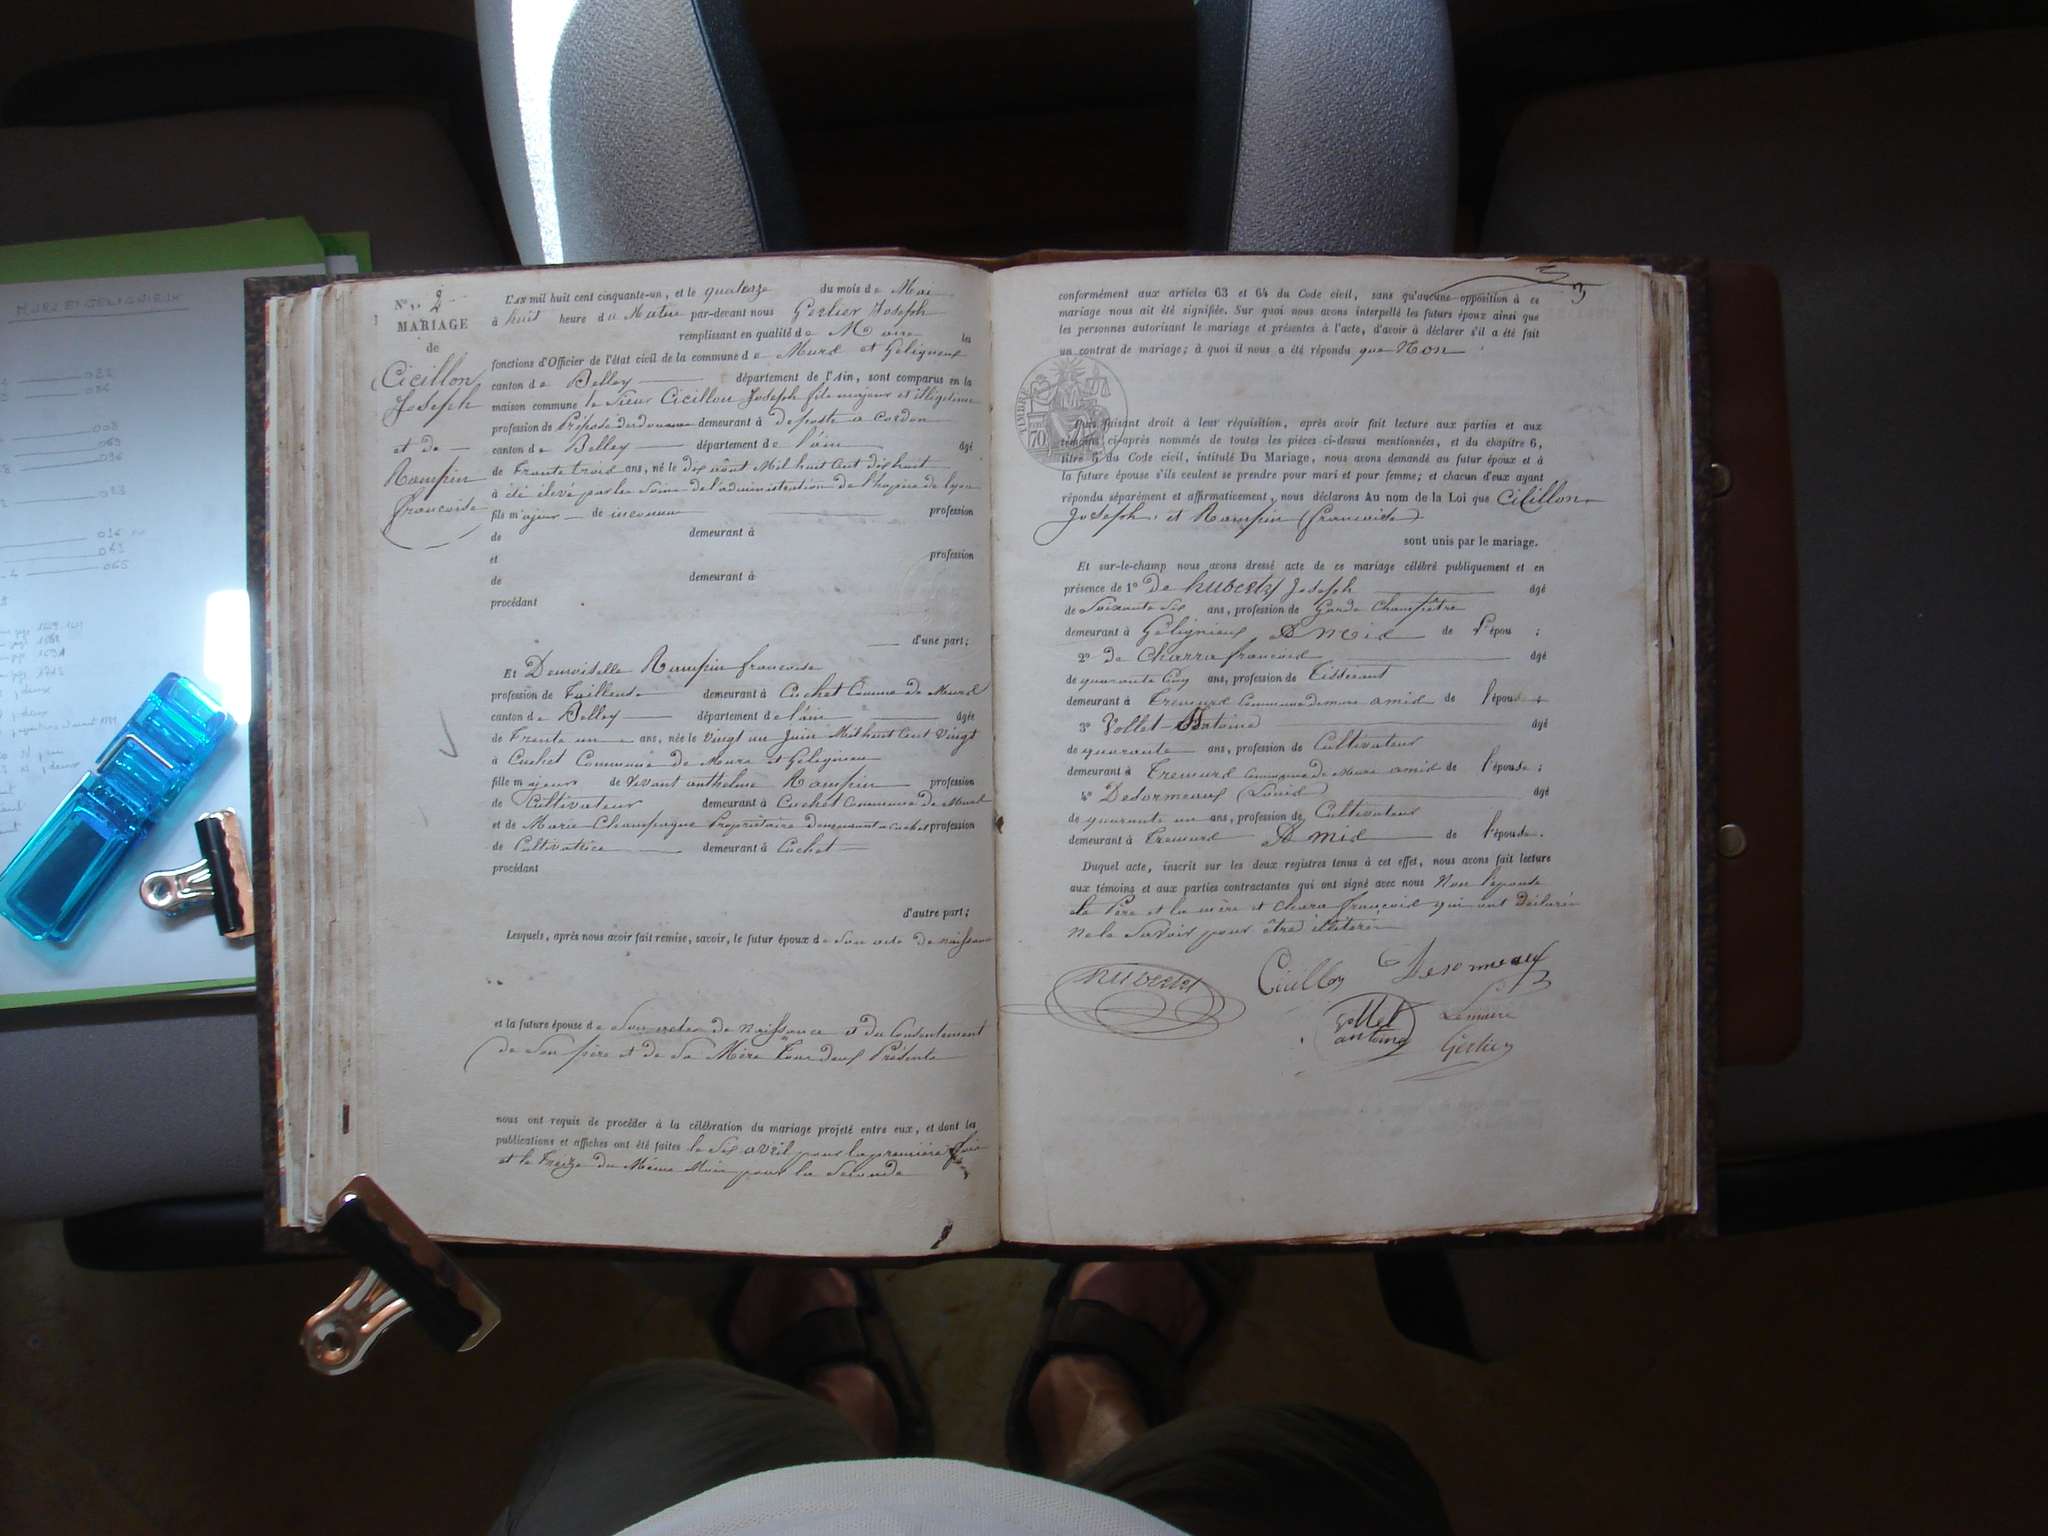 MURS ET GELIGNIEUX
N°. 2
MARIAGE
de
Cicillon
Joseph
et de
Rampin
francoise
L'AN mil huit cent cinquante-un, et le quatorze du mois de Mai
à huit heure du Matin par-devant nous Gerlier Joseph
remplissant en qualité de Maire les
fonctions d'Officier de l'état civil de la commune de Murs et Geligneux
canton de Belley département de l'Ain, sont comparus en la
maison commune le Sieur Cicillon Joseph fils majeur et illégitime
profession de Préposé des douanes demeurant à deposte a Cordon
canton de Belley département de l'ain âgé
de Trente trois ans, né le dix août Mil huit Cent dix huit
à été élevé par les Soins de l'administration de l'hospice de lyon
fils majeur de inconnu profession
de demeurant à
et profession
de demeurant à
procédant
d'une part;
Et Demoiselle Rampin francoise
profession de Tailleuse demeurant à Cuchet Comune de Meurs
canton de Belley département de l'ain âgée
de Trente un ans, née le vingt un Juin Mil huit Cent vingt
à Cuchet Commune de Meurs et Gelignieu
fille majeur de Vivant anthelme Rampin profession
de Cultivateur demeurant à Cuchet Commune de Meurs
et de Marie Champagne Propriétaire demeurant a Cuchet profession
de Cultivatrice demeurant à Cuchet
procédant
d'autre part;
Lesquels, après nous avoir fait remise, savoir, le futur époux de Son acte de naissance
et la future épouse de Son acte de naissance et du Consentement
de Son père et de Sa Mère Tous deux Présents
nous ont requis de procéder à la célébration du mariage projeté entre eux, et dont les
publications et affiches ont été faites le Six avril pour la première fois
et le Treize du Même Mois pour la Seconde
3
conformément aux articles 63 et 64 du Code civil, sans qu'aucune opposition à ce
mariage nous ait été signifiée. Sur quoi nous avons interpellé les futurs époux ainsi que
les personnes autorisant le mariage et présentes à l'acte, d'avoir à déclarer s'il a été fait
un contrat de mariage; à quoi il nous a été répondu que Non
TIMBRE
70
Puis faisant droit à leur réquisition, après avoir fait lecture aux parties et aux
témoins ci-après nommés de toutes les pièces ci-dessus mentionnées, et du chapitre 6,
titre 5 du Code civil, intitulé Du Mariage, nous avons demandé au futur époux et à
la future épouse s'ils veulent se prendre pour mari et pour femme; et chacun d'eux ayant
répondu séparément et affirmativement, nous déclarons Au nom de la Loi que Cicillon
Joseph, et Rampin (francoise)
sont unis par le mariage.
Et sur-le-champ nous avons dressé acte de ce mariage célébré publiquement et en
présence de 1° De hubert Joseph âgé
de Soixante Six ans, profession de Garde Champêtre
demeurant à Gélignieux Amis de l'épou ;
2° de Charra francois âgé
de quarante Cinq ans, profession de Tisserant
demeurant à Tremurs Commune de murs amis de l'épouse
3° Vollet Antoine âgé
de quarante ans, profession de Cultivateur
demeurant à Tremurs Commune de Meurs amis de l'épouse ;
4° Desormeaux (Louis) âgé
de quarante un ans, profession de Cultivateur
demeurant à Tremurs Amis de l'épouse.
Duquel acte, inscrit sur les deux registres tenus à cet effet, nous avons fait lecture
aux témoins et aux parties contractantes qui ont signé avec nous Non l'épouse
le Père et la mère et chara francois qui ont Déclarés
ne le Savoir pour être illiterés
hubert Cicillon Desormeaux
Vollet
antoine
Lemaire
Gerlier